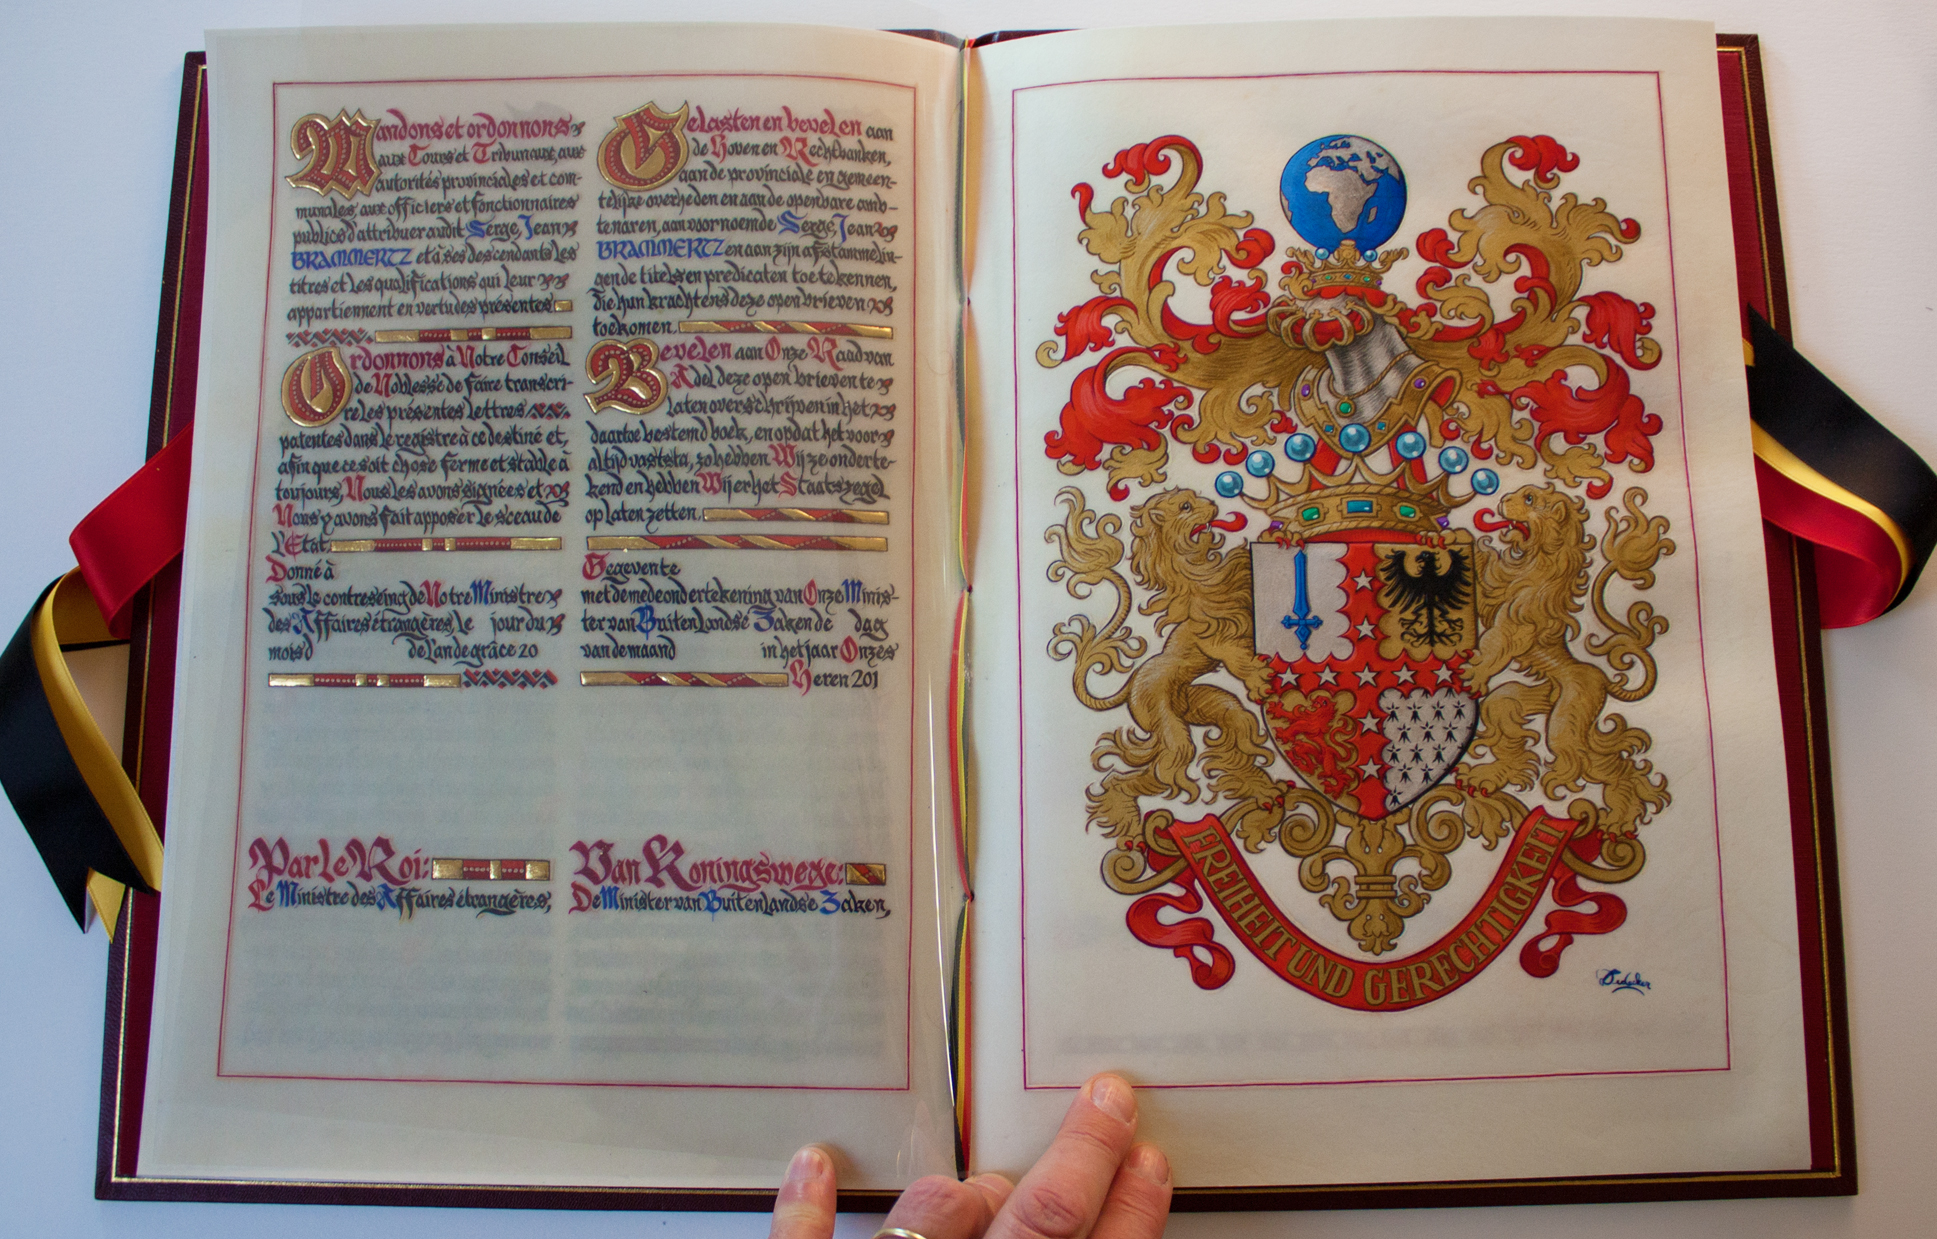 Mandons et ordonnons
aux Cours et Tribunaux, aux
autorités provinciales et com-
munales, aux officiers et fonctionnaires
publics d'attribuer audit Serge, Jean
BRAMMERTZ et à ses descendants les
titres et les qualifications qui leur
appartiennent en vertu des présentes
Ordonnons à Notre Conseil
de Noblesse de faire transcri-
re les présentes lettres
patentes dans le registre à ce destiné et,
afin que ce soit chose ferme et stable à
toujours, Nous les avons signées et
Nous y avons fait apposer le sceau de
l'Etat.
Donné à
sous le contreseing de Notre Ministre
des Affaires étrangères, le jour du
mois d de l'an de grâce 20
Par le Roi:
Le Ministre des Affaires étrangères,
Gelasten en bevelen aan
de Hoven en Rechtbanken,
aan de provinciale en gemeen-
telijke overheden en aan de openbare amb-
tenaren, aan voornoemde Serge, Jean
BRAMMERTZ en aan zijn afstammelin-
gen de titels en predicaten toe te kennen,
die hun krachtens deze open brieven
toekomen.
Bevelen aan Onze Raad van
Adel deze open brieven te
laten overschrijven in het
daartoe bestemd boek, en opdat het voor
altijd vaststa, zo hebben Wij ze onderte-
kend en hebben Wij er het Staatszegel
op laten zetten.
Gegeven te
met de medeondertekening van Onze Minis-
ter van Buitenlandse Zaken de dag
van de maand in het jaar Onzes
Heren 201
Van Koningswege:
De Minister van Buitenlandse Zaken,
FREIHEIT UND GERECHTIGKEIT